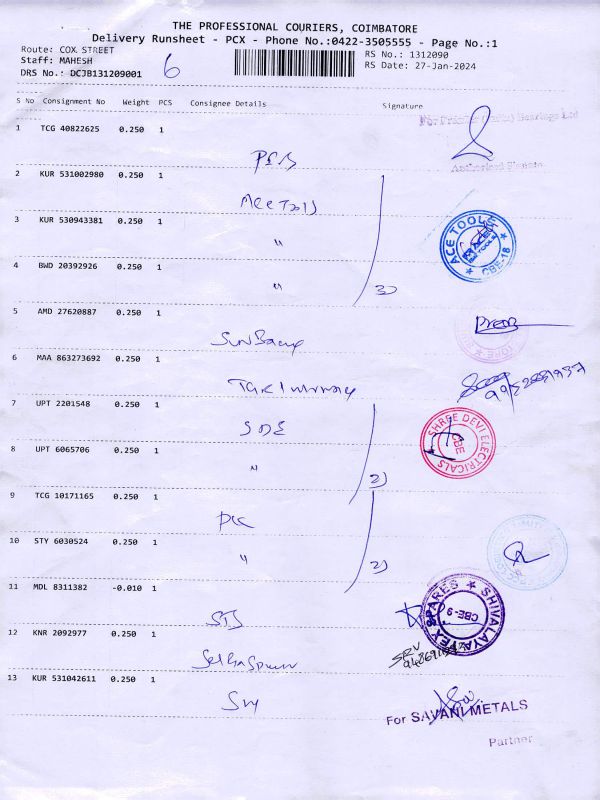 THE PROFESSIONAL COURIERS, COIMBATORE
Delivery Runsheet - PCX - Phone No.:0422-3505555 - Page No.:1
Route: COX STREET
Staff: MAHESH
DRS No.: DCJB131209001
6
RS No.: 1312090
RS Date: 27-Jan-2024
S No Consignment No Weight PCS Consignee Details Signature
1 TCG 40822625 0.250 1
2 KUR 531002980 0.250 1
3 KUR 530943381 0.250 1
"
ACE TOOLS
CBE-18
4 BWD 20392926 0.250 1
"
3)
5 AMD 27620887 0.250 1
6 MAA 863273692 0.250 1
7 UPT 2201548 0.250 1
SDE
SHREE DEVI ELECTRICALS
CBE
8 UPT 6065706 0.250 1
"
2)
9 TCG 10171165 0.250 1
10 STY 6030524 0.250 1
"
2)
11 MDL 8311382 -0.010 1
STS
SHIVALAYA TEX SPARES
CBE-9
12 KNR 2092977 0.250 1
SRV
13 KUR 531042611 0.250 1
For SAVANI METALS
Partner